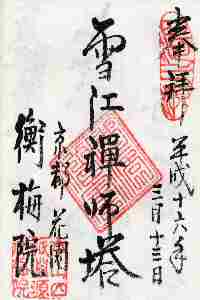 奉拝
平成十六年
三月十三日
雪江禪師塔
京都花園
衡梅院